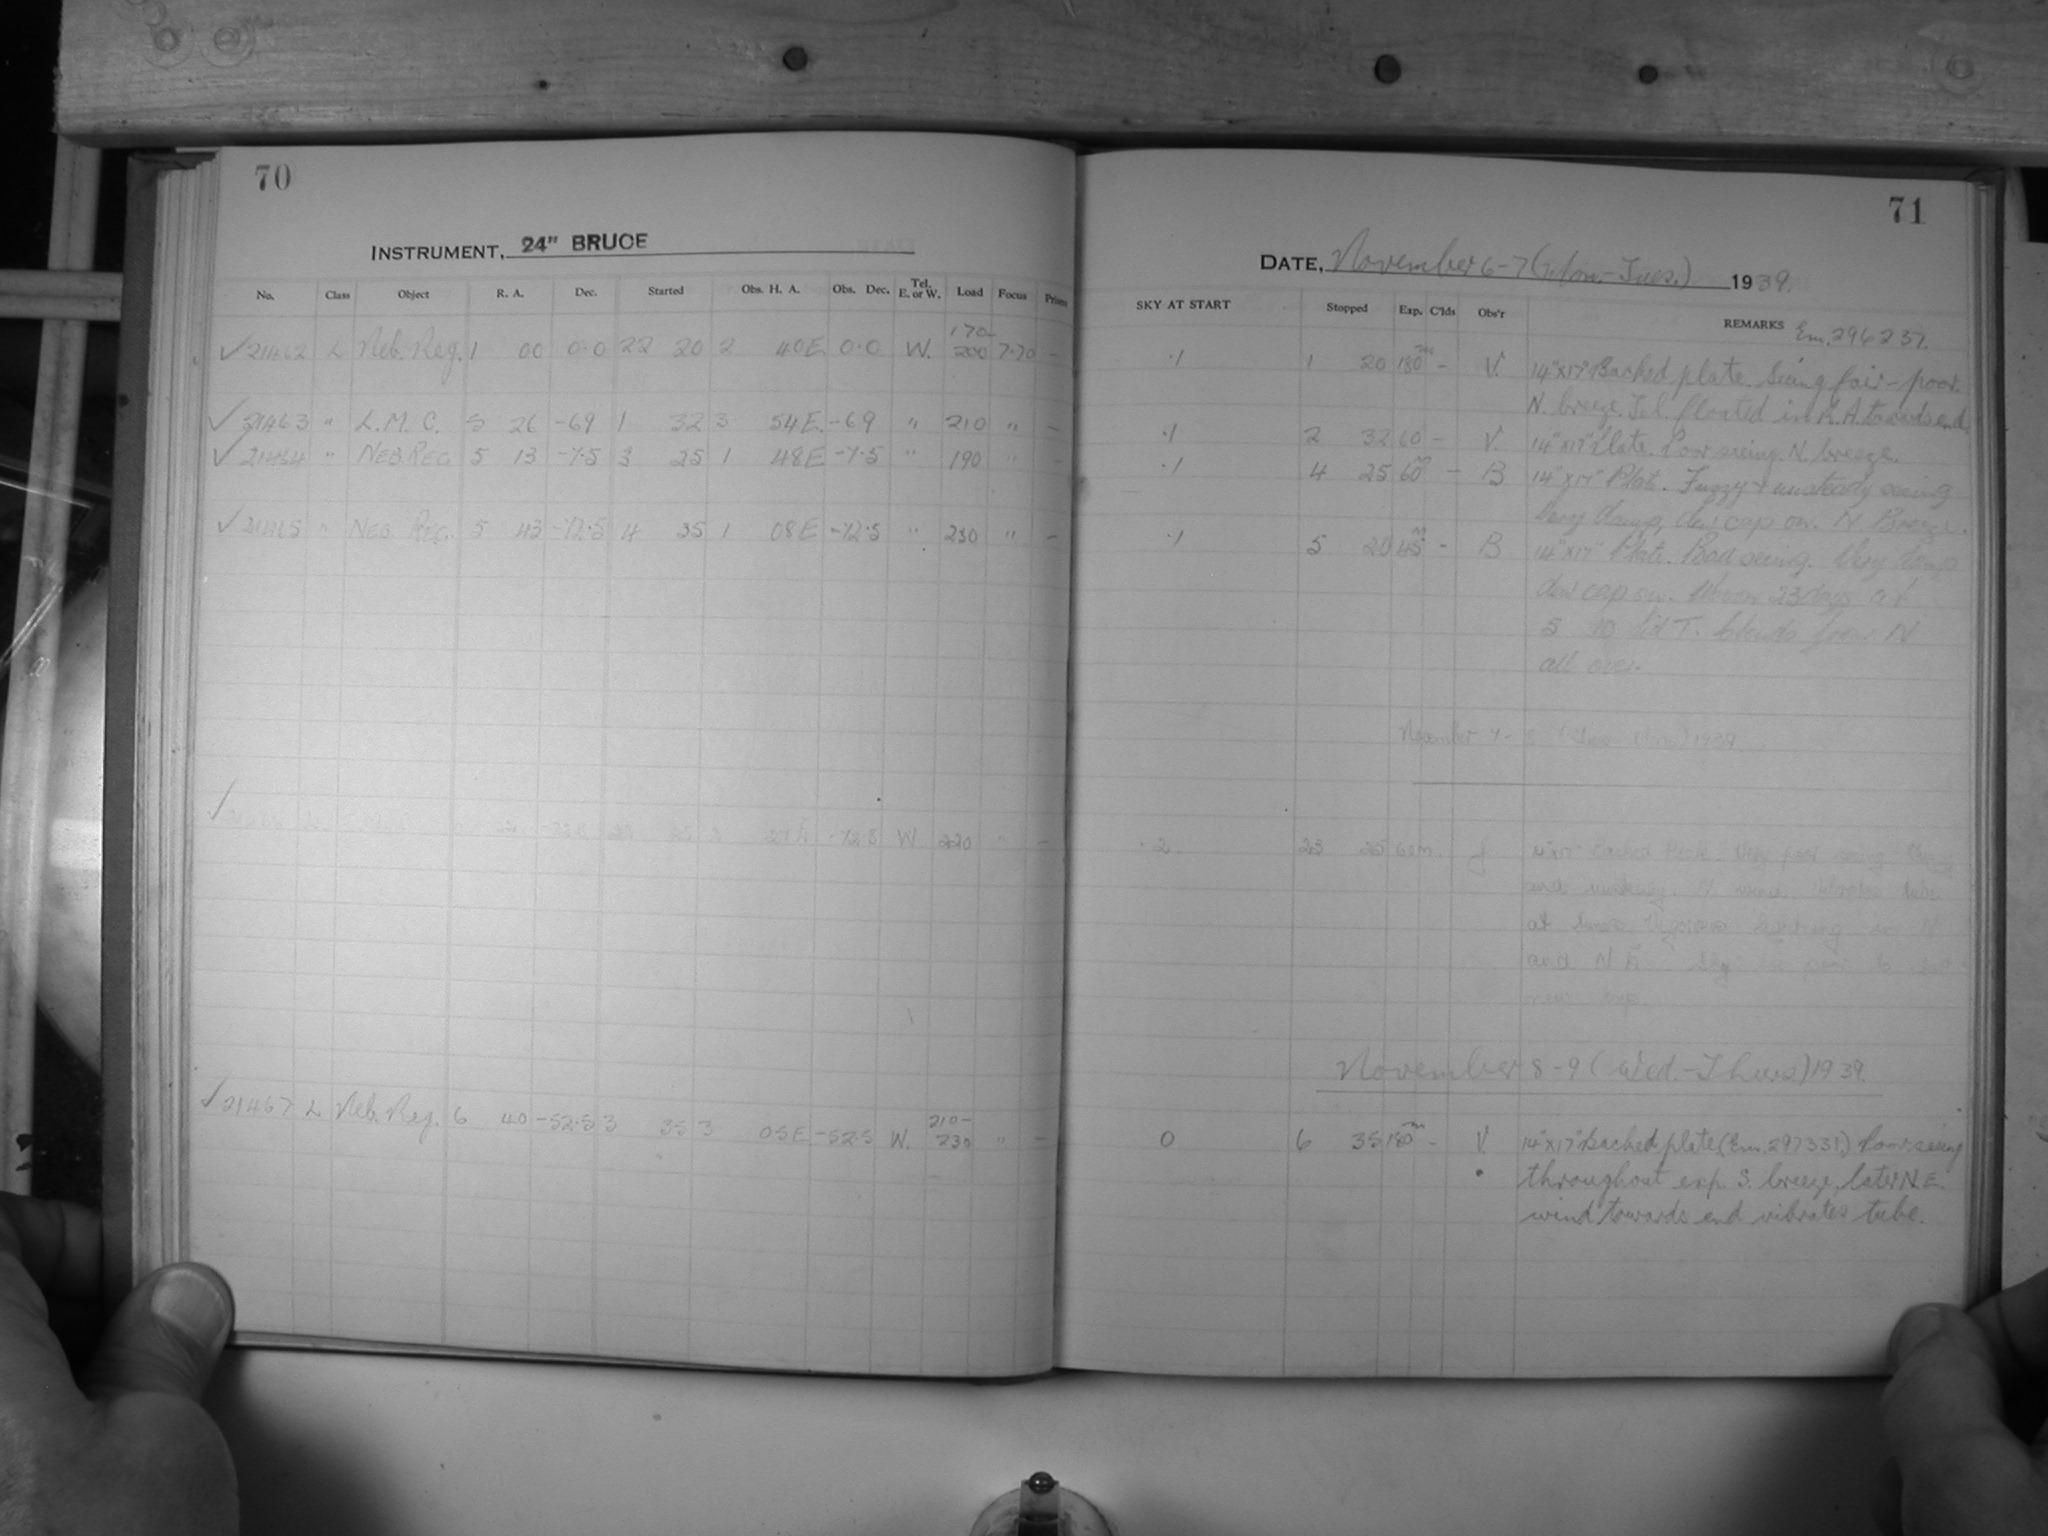 70
INSTRUMENT, 24" BRUCE
No. Class Object R. A. Dec. Started Obs. H. A. Obs. Dec. Tel. E. or W. Load Focus Prism
170-
✓ 21462 L Neb. Reg. 1 00 0.0 22 20 2 40E. 0.0 W. 200 7.70 -
✓ 21463 " L.M.C. 5 26 -69 1 32 3 54E. -69 " 210 " -
✓ 21464 " NEB. REG 5 13 -7.5 3 25 1 48E -7.5 " 190 " -
✓ 21465 " NEB. REG. 5 43 -12.5 4 35 1 08E -12.5 " 230 " -
✓ W 220 " -
210-
✓ 21467 L Neb. Reg. 6 40 -52.5 3 35 3 05E -52.5 W. 230 " -
71
DATE, November 6-7 (Mon.-Tues.) 1939.
SKY AT START Stopped Exp. C'lds Obs'r REMARKS Em. 296237.
.1 1 20 180m - V. 14"x17" Backed plate. Seeing fair - poor.
N. breeze. Tel. floated in R.A. towards end.
.1 2 32 60 - V. 14"x17" Plate. Poor seeing. N. breeze.
.1 4 25 60m - B 14"x17" Plate. Fuzzy & unsteady seeing
Very damp, dew cap on. N. Breeze.
.1 5 20 45m - B 14"x17" Plate. Bad seeing. Very damp
dew cap on. at
5 10 Sid T. clouds from N
all over.
November 7-8 1939
.2 23 60m. J Backed Plate. Very poor seeing
and unsteady. N wind vibrates tube
at times. lightning in N
and N E. Sky too poor to
new exp.
November 8-9 (Wed.-Thurs) 1939.
0 6 35 180m - V. 14"x17" Backed plate (Em. 297331.) Poor seeing
throughout exp. S. breeze, later N.E.
wind towards end vibrates tube.